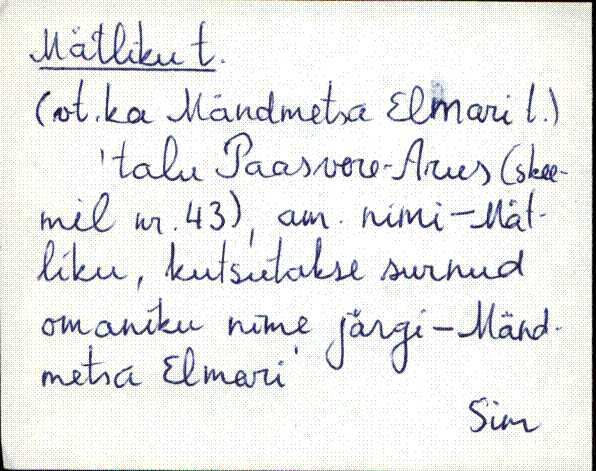 Mätliku t.
(vt. ka Mändmetsa Elmari t.)
'talu Paasvere-Arus (skee-
mil nr. 43), am. nimi - Mät-
liku, kutsutakse surnud
omaniku nime järgi - Mänd-
metsa Elmari'
Sim